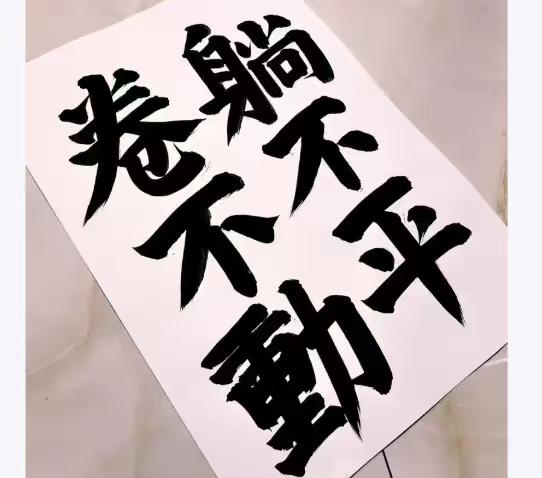 躺不平
卷不動